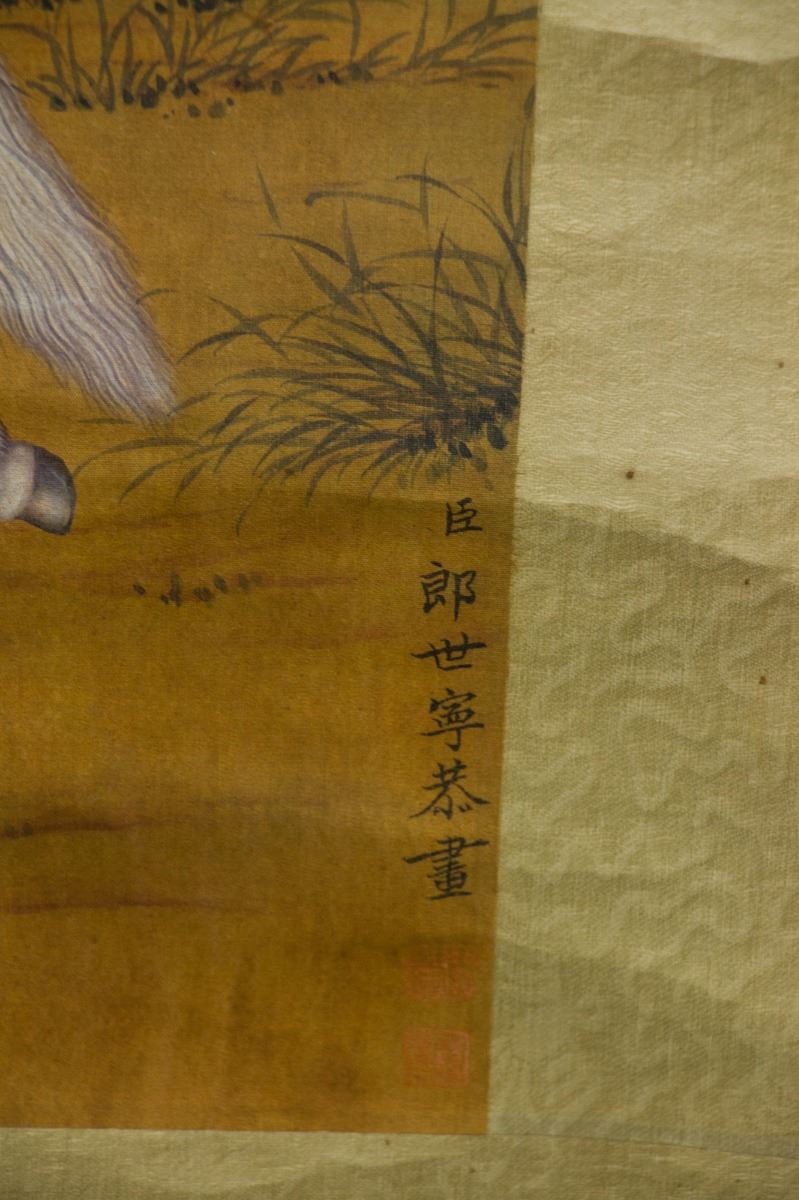 臣郎世寧恭畫